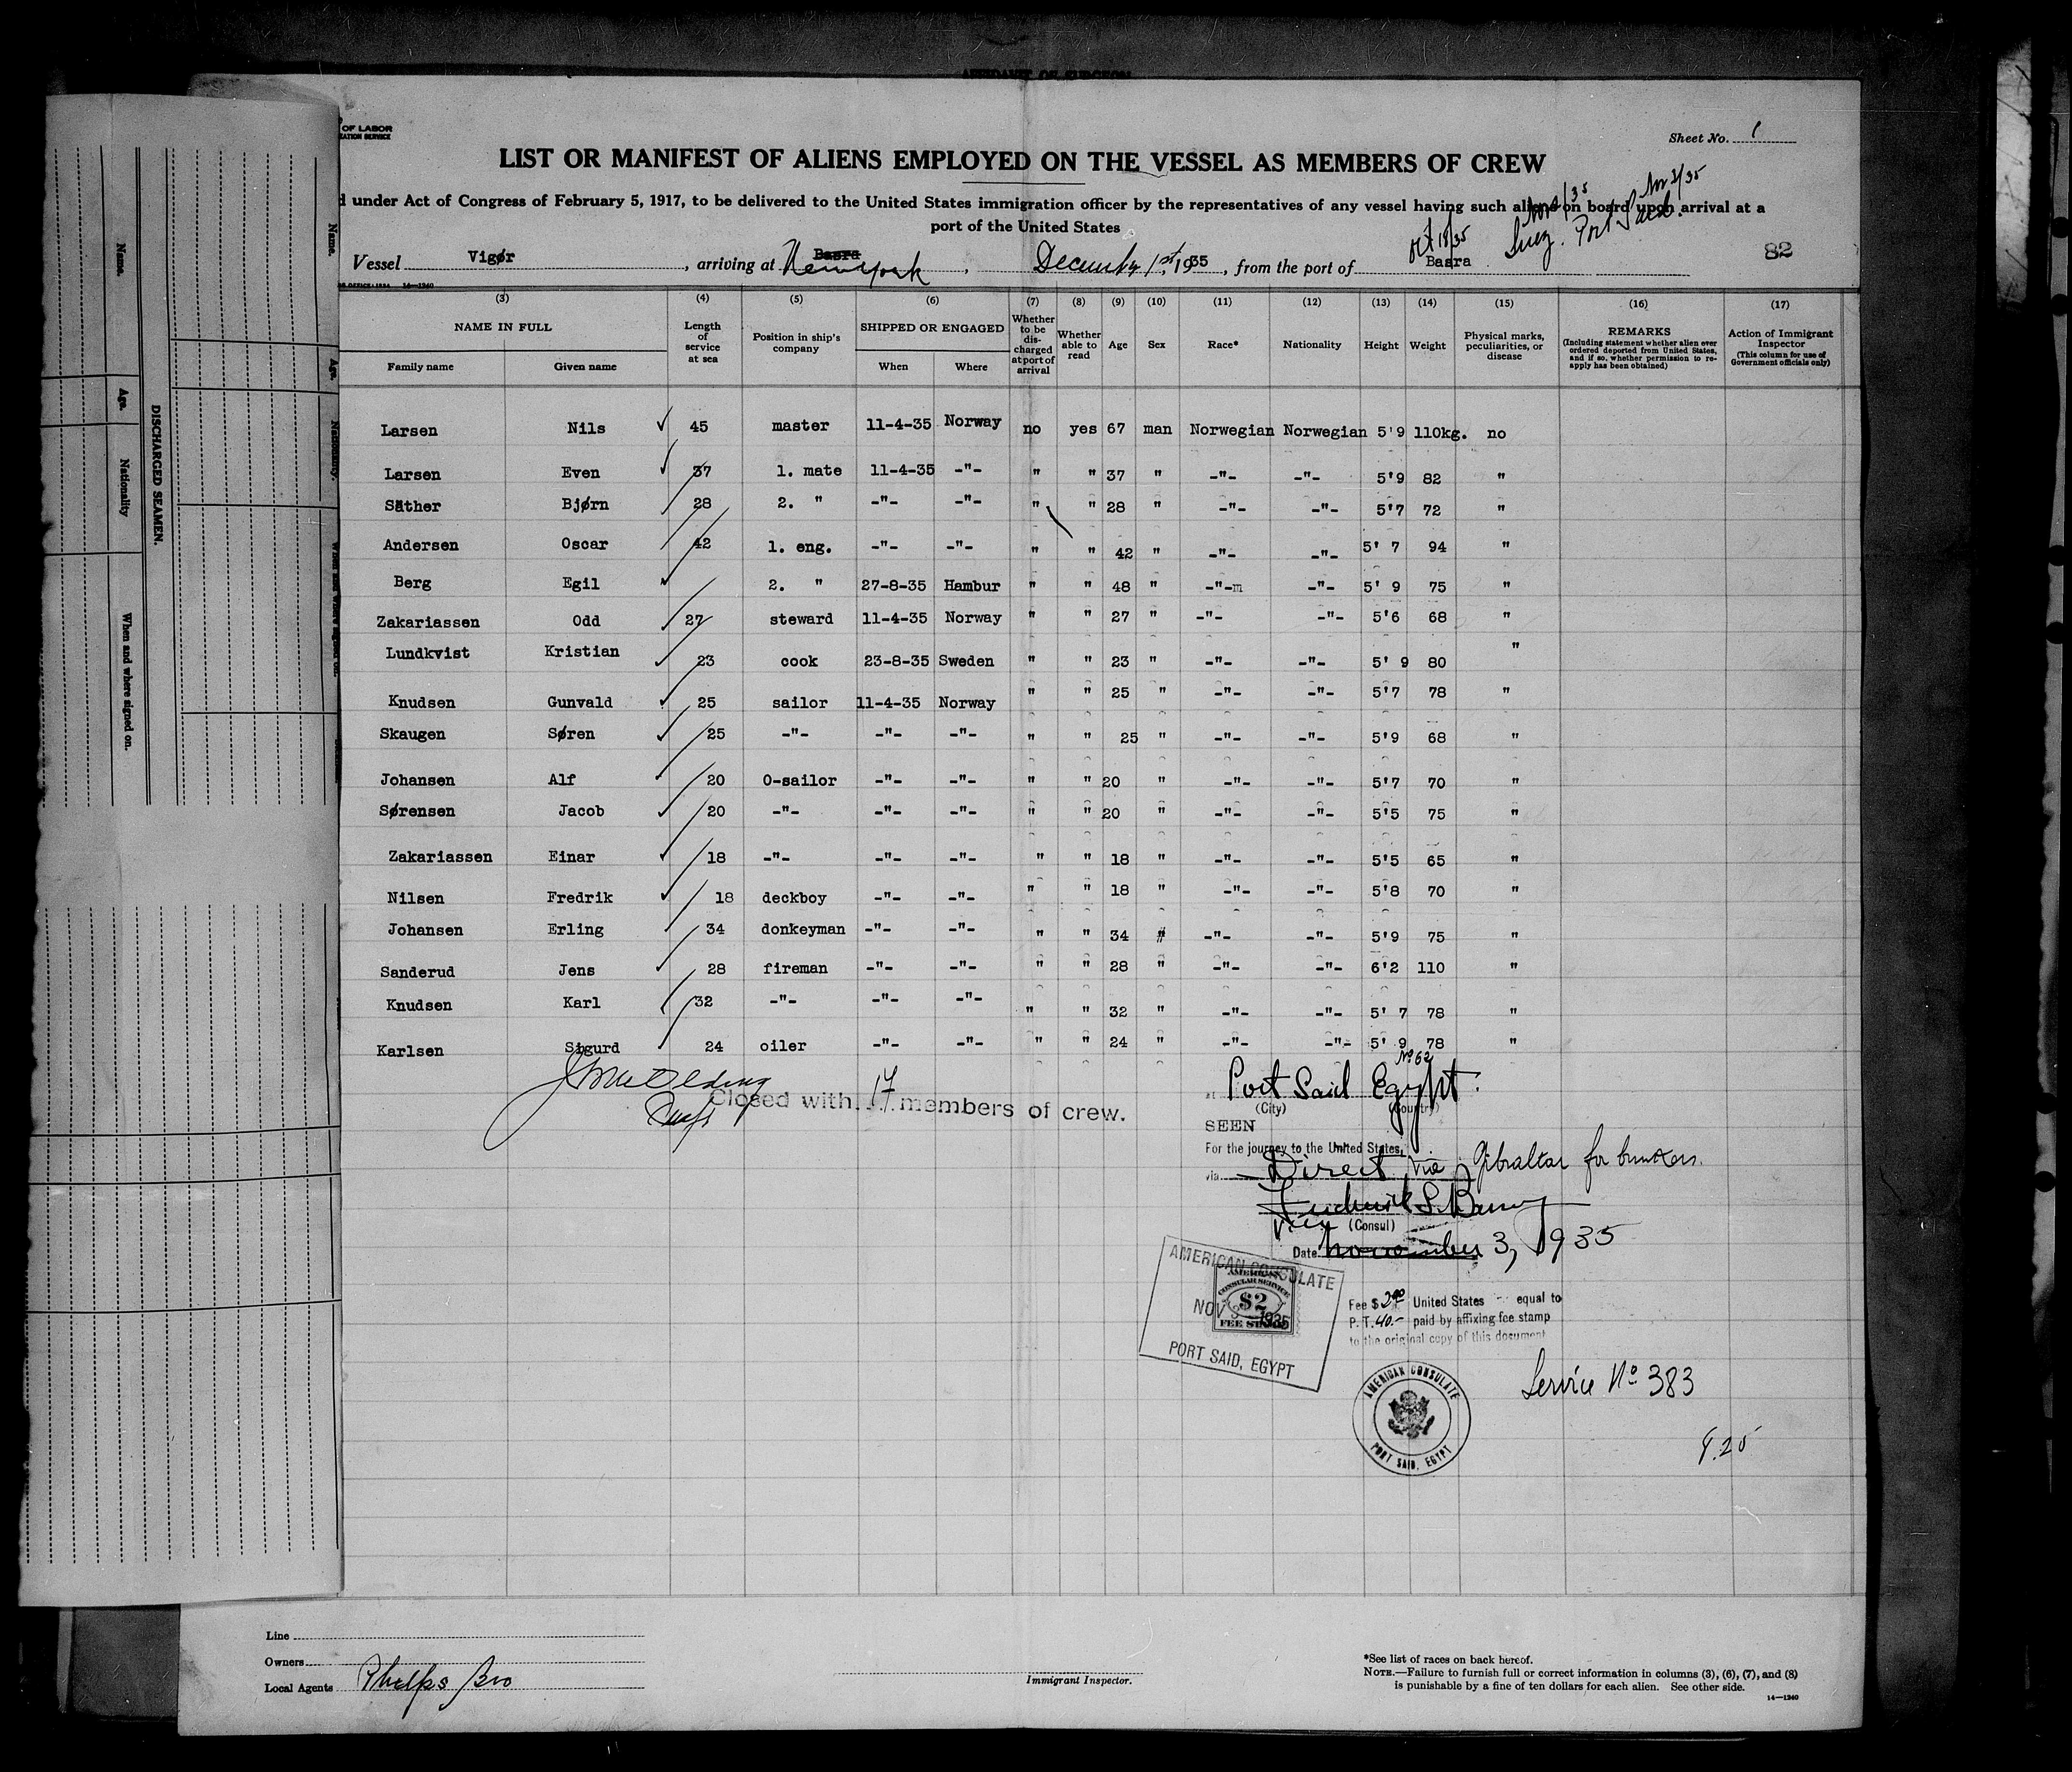 AFFIDAVIT OF SURGEON
OF LABOR
Sheet No. 1
LIST OR MANIFEST OF ALIENS EMPLOYED ON THE VESSEL AS MEMBERS OF CREW
under Act of Congress of February 5, 1917, to be delivered to the United States immigration officer by the representatives of any vessel having such aliens on board upon arrival at a
port of the United States
Nov 3/35
Oct 18/35 Suez. Port Said.
82
Vessel Vigør, arriving at Basra New York, December 1st, 1935, from the port of Basra
(3) (4) (5) (6) (7) (8) (9) (10) (11) (12) (13) (14) (15) (16) (17)
NAME IN FULL Length of service at sea Position in ship's company SHIPPED OR ENGAGED Whether to be discharged at port of arrival Whether able to read Age Sex Race* Nationality Height Weight Physical marks, peculiarities, or disease REMARKS (Including statement whether alien ever ordered deported from United States, and if so, whether permission to reapply has been obtained) Action of Immigrant Inspector (This column for use of Government officials only)
Family name Given name When Where
Larsen Nils 45 master 11-4-35 Norway no yes 67 man Norwegian Norwegian 5'9 110kg. no
Larsen Even 37 1. mate 11-4-35 -"- " " 37 " -"- -"- 5'9 82 "
Säther Bjørn 28 2. " -"- -"- " " 28 " -"- -"- 5'7 72 "
Andersen Oscar 42 1. eng. -"- -"- " " 42 " -"- -"- 5' 7 94 "
Berg Egil 2. " 27-8-35 Hambur " " 48 " -"-m -"- 5' 9 75 "
Zakariassen Odd 27 steward 11-4-35 Norway " " 27 " -"- -"- 5'6 68 "
Lundkvist Kristian 23 cook 23-8-35 Sweden " " 23 " -"- -"- 5' 9 80 "
Knudsen Gunvald 25 sailor 11-4-35 Norway " " 25 " -"- -"- 5'7 78 "
Skaugen Søren 25 -"- -"- -"- " " 25 " -"- -"- 5'9 68 "
Johansen Alf 20 O-sailor -"- -"- " " 20 " -"- -"- 5'7 70 "
Sørensen Jacob 20 -"- -"- -"- " " 20 " -"- -"- 5'5 75 "
Zakariassen Einar 18 -"- -"- -"- " " 18 " -"- -"- 5'5 65 "
Nilsen Fredrik 18 deckboy -"- -"- " " 18 " -"- -"- 5'8 70 "
Johansen Erling 34 donkeyman -"- -"- " " 34 " -"- -"- 5'9 75 "
Sanderud Jens 28 fireman -"- -"- " " 28 " -"- -"- 6'2 110 "
Knudsen Karl 32 -"- -"- -"- " " 32 " -"- -"- 5' 7 78 "
Karlsen Sigurd 24 oiler -"- -"- " " 24 " -"- -"- 5' 9 78 "
No 62
Closed with 17 members of crew.
Port Said Egypt.
(City) (Country)
SEEN
For the journey to the United States,
via Direct via Gibraltar for bunkers.
Vice (Consul)
Date November 3, 1935
AMERICAN CONSULATE
NOV 3 1935
PORT SAID, EGYPT
AMERICAN CONSULAR SERVICE
$2
FEE STAMP
Fee $ 2.00 United States equal to
P. T. 40.- paid by affixing fee stamp
to the original copy of this document
AMERICAN CONSULATE
PORT SAID, EGYPT
Service No 383
Line
Owners
Local Agents Phelps Bro
Immigrant Inspector.
*See list of races on back hereof.
NOTE.—Failure to furnish full or correct information in columns (3), (6), (7), and (8)
is punishable by a fine of ten dollars for each alien. See other side.
14—1240
DISCHARGED SEAMEN.
Name. Age. Nationality When and where signed on.
Name. Age. Nationality.